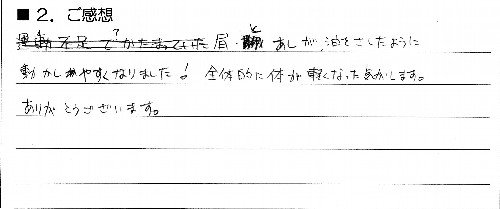 ■ 2. ご感想
運動不足でかたまっていた肩・と あしが、油をさしたように
動かしやすくなりました！ 全体的に体が軽くなった気がします。
ありがとうございます。